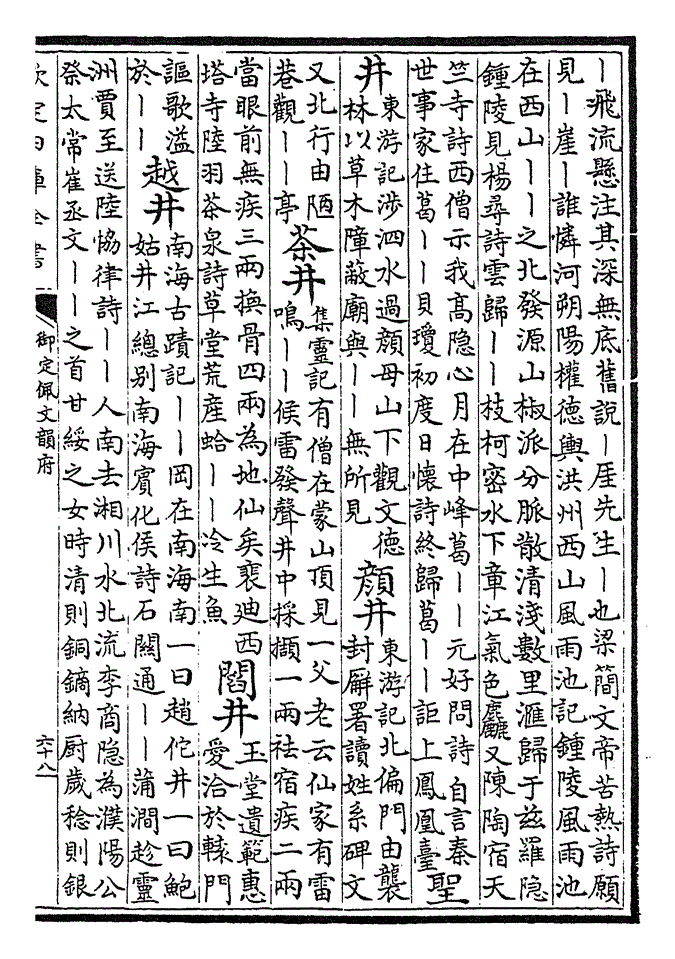 丨飛流懸注其深無底舊說丨厓先生丨也梁簡文帝苦熱詩願
見丨崖丨誰憐河朔陽權德輿洪州西山風雨池記鍾陵風雨池
在西山丨丨之北發源山椒派分脈散清淺數里滙歸于兹羅隐
鍾陵見楊尋詩雲歸丨丨枝柯宻水下章江氣色麤又陳陶宿天
竺寺詩西僧示我髙隐心月在中峰葛丨丨元好問詩自言秦
世事家住葛丨丨貝瓊初度日懷詩終歸葛丨丨詎上鳳凰臺
聖
井
東游記渉泗水過顔母山下觀文德
林以草木障蔽廟與丨丨無所見
顔井
東游記北偏門由襲
封廨署讀姓系碑文
又北行由陋
巷觀丨丨亭
茶井
集靈記有僧在蒙山頂見一父老云仙家有雷
鳴丨丨侯雷發聲井中採擷一兩祛宿疾二兩
當眼前無疾三兩換骨四兩為地仙矣裴廸西
塔寺陸羽茶泉詩草堂荒産蛤丨丨冷生魚
閻井
玉堂遺範惠
愛洽於轅門
謳歌溢
於丨丨
越井
南海古蹟記丨丨岡在南海南一曰趙佗井一曰鮑
姑井江總别南海賓化侯詩石闗通丨丨蒲澗趁靈
洲賈至送陸恊律詩丨丨人南去湘川水北流李商隐為濮陽公
祭太常崔丞文丨丨之首甘綏之女時清則銅鏑納厨歲稔則銀
欽定四庫全書
御定佩文韻府
六十八